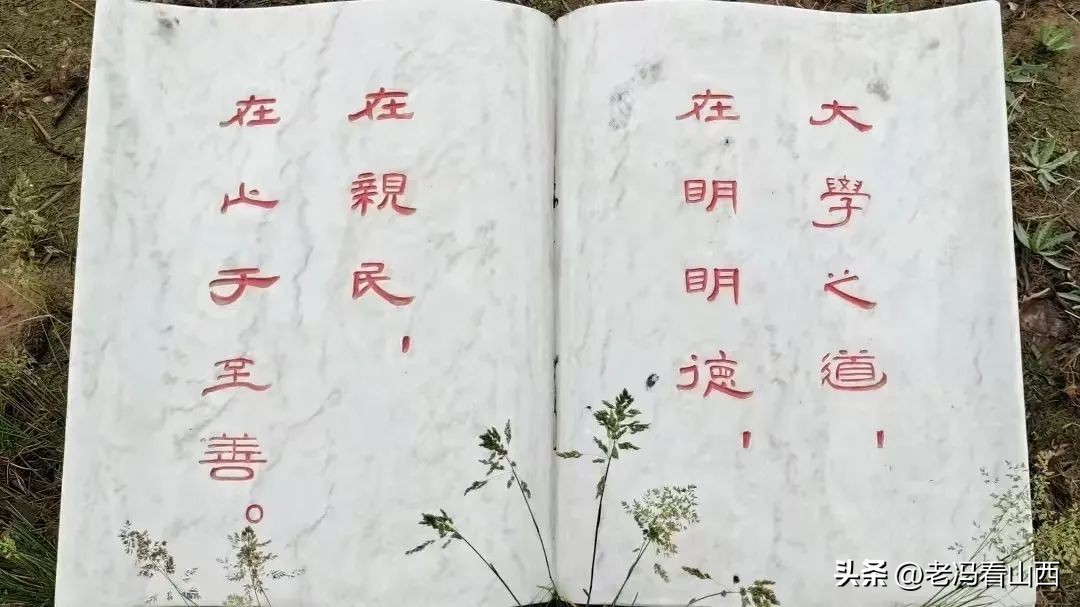 大學之道，
在明明德，
在親民，
在止于至善。
头条 @老冯看山西